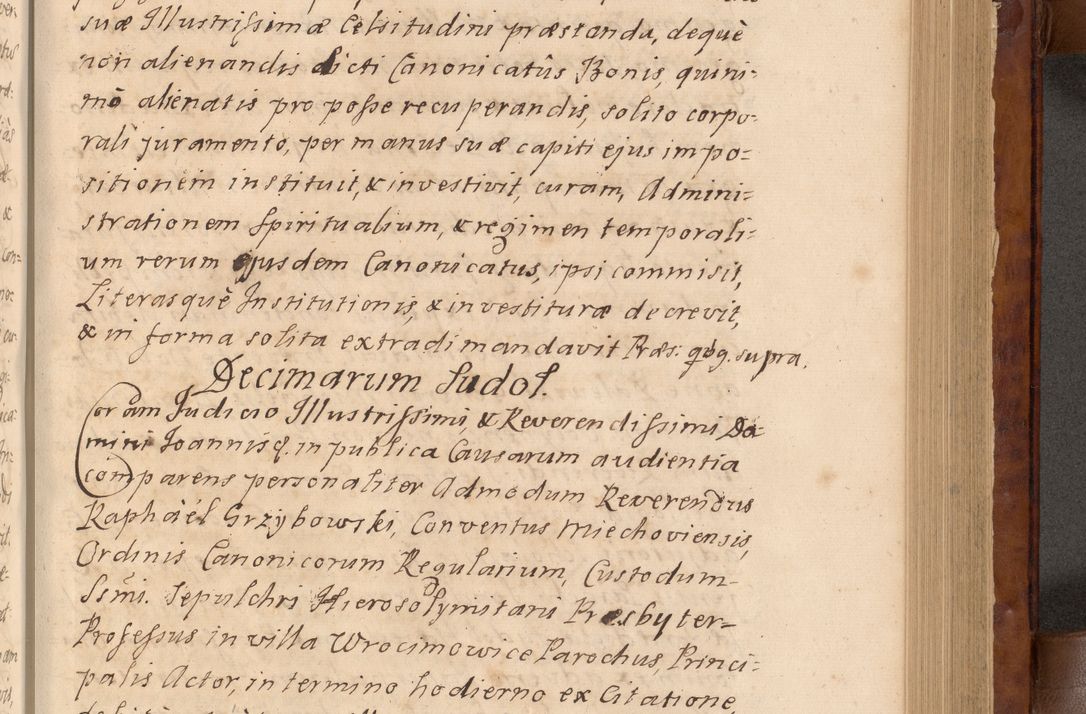 suæ Illustrissimæ Celsitudini præstanda, dequè
non alienandis dicti Canonicatûs Bonis, quini=
mò alienatis pro posse recuperandis, solito corpo=
rali juramento, per manus suæ capiti ejus impo=
sitionem instituit, & investivit, curam, Admini=
strationem Spiritualium, & regimen temporali=
um rerum ejusdem Canonicatus, ipsi commisit,
Literasquè Institutionis, & investituræ decrevit,
& in forma solita extradi mandavit Præs: qbg. supra.
Decimarum Sudol.
Coram Judicio Illustrissimi, & Reverendissimi Do=
mini Joannis &. in publica Causarum audientia
comparens personaliter Admodum Reverendus
Raphaël Grzybowski, Conventus Miechoviensis,
Ordinis Canonicorum Regularium, Custodum
Ssmi. Sepulchri Hierosolymitani Presbyter
Professus in villa Wrocimowice Parochus, Princi=
palis Actor, in termino hodierno ex Citatione,